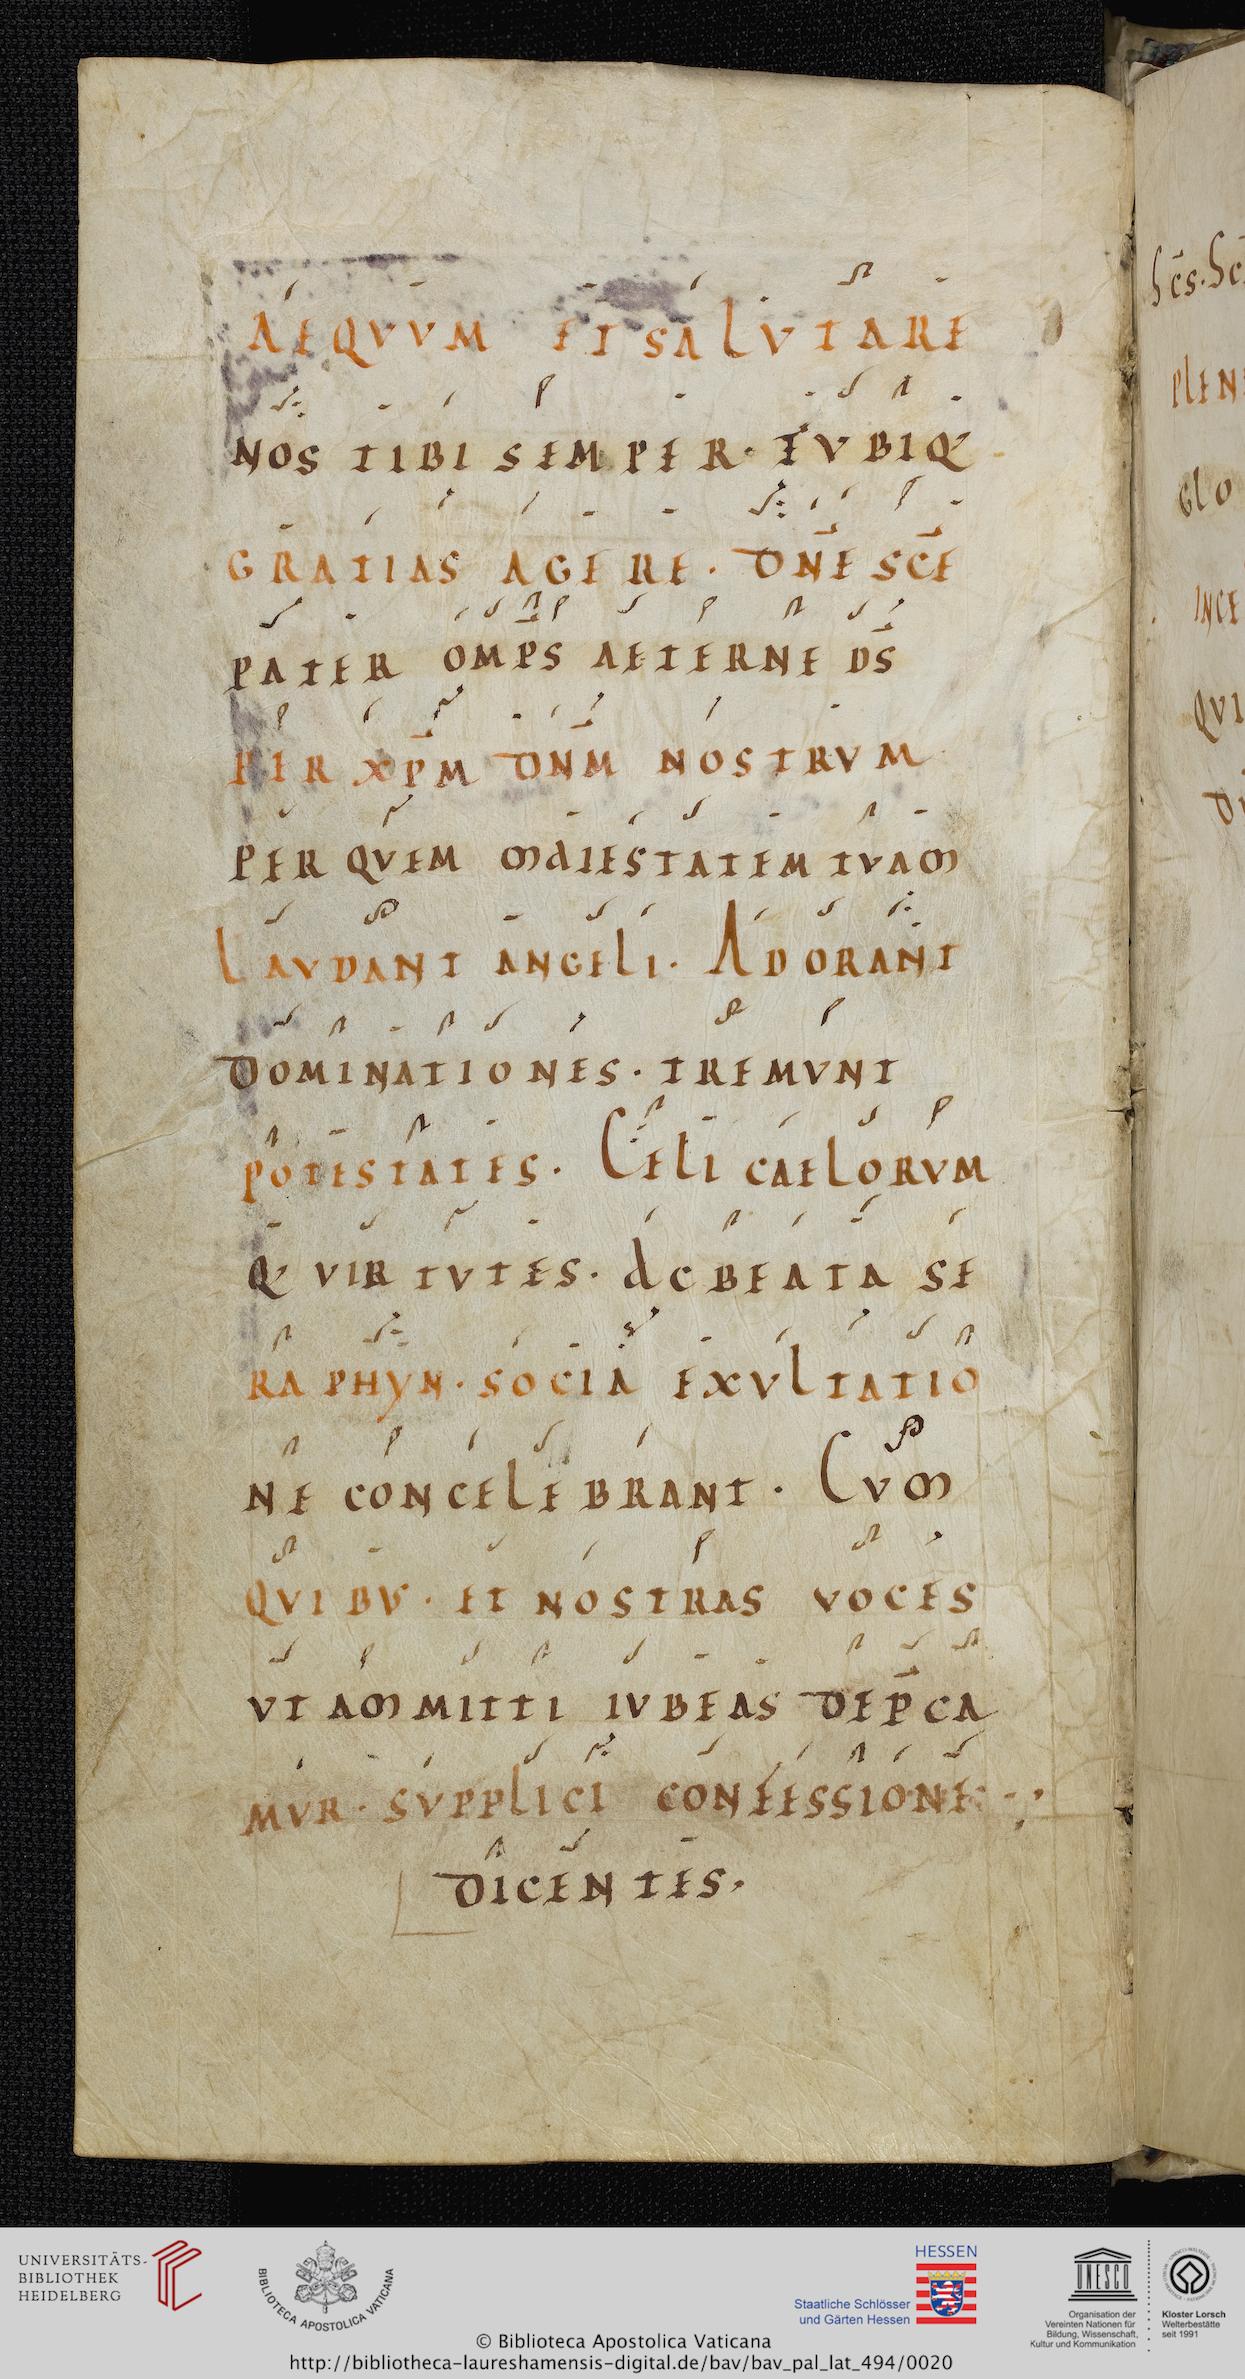 AEQVVM ET SALVTARE
NOS TIBI SEMPER· ET VBIQ
GRATIAS AGERE· DN̄E SC̄E
PATER OMP̄S AETERNE DS̄
PER XP̄M DN̄M NOSTRVM
PER QVEM MAIESTATEM TVAM
LAVDANT ANGELI· ADORANT
DOMINATIONES· TREMVNT
POTESTATES· CELI CAELORVM
Q VIRTVTES· AC BEATA SE
RAPHYN· SOCIA EXVLTATIO
NE CONCELEBRANT· CVM
QVIBV· ET NOSTRAS VOCES
VT AMMITTI IVBEAS DEP̄CA
MVR· SVPPLICI CONFESSIONE
DICENTES·
hc̄s· hc
PLEN
GLO
INCE
QVI
UNIVERSITÄTS-
BIBLIOTHEK
HEIDELBERG
BIBLIOTECA APOSTOLICA VATICANA
HESSEN
Staatliche Schlösser
und Gärten Hessen
UNESCO
Organisation der
Vereinten Nationen für
Bildung, Wissenschaft,
Kultur und Kommunikation
Kloster Lorsch
Welterbestätte
seit 1991
© Biblioteca Apostolica Vaticana
http://bibliotheca-laureshamensis-digital.de/bav/bav_pal_lat_494/0020